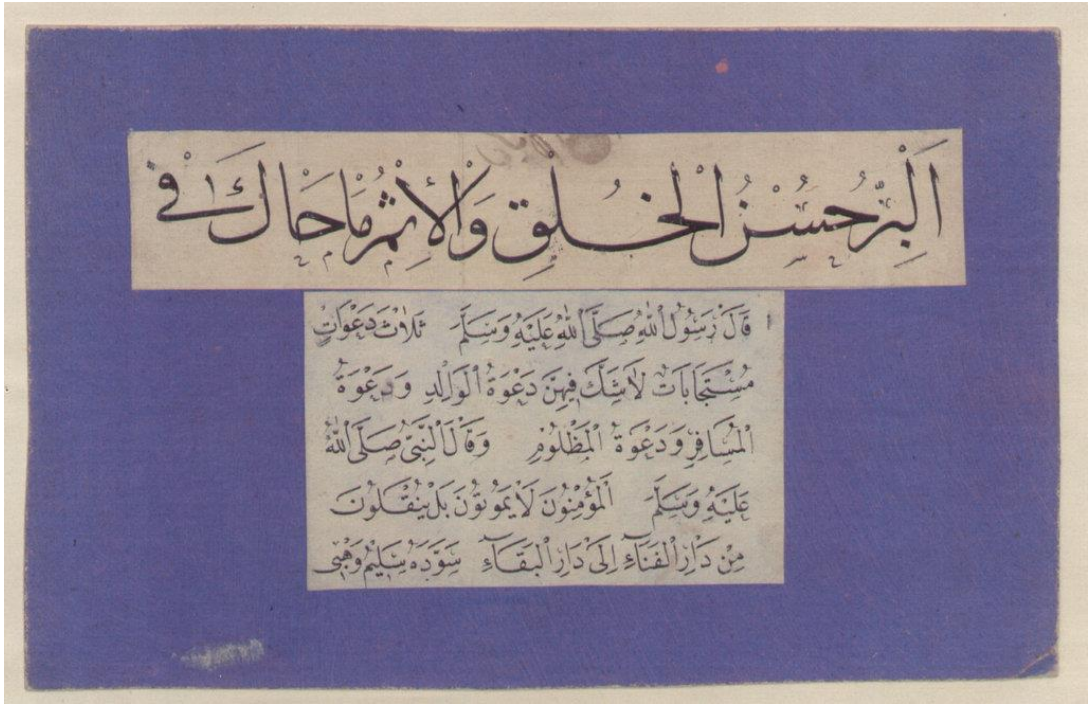 اَلْبِرُّ حُسْنُ الْخُلُقِ وَالْاِثْمُ مَا حَاكَ فِي
قَالَ رَسُولُ اللّٰهِ صَلَّى اللّٰهُ عَلَيْهِ وَسَلَّمَ ثَلَاثُ دَعَوَاتٍ
مُسْتَجَابَاتٌ لَاشَكَّ فِيهِنَّ دَعْوَةُ الْوَالِدِ وَدَعْوَةُ
الْمُسَافِرِ وَدَعْوَةُ الْمَظْلُومِ وَقَالَ النَّبِيُّ صَلَّى اللّٰهُ
عَلَيْهِ وَسَلَّمَ الْمُؤْمِنُونَ لَايَمُوتُونَ بَلْ يَنْقَلُونَ
مِنْ دَارِ الْفَنَاءِ اِلَى دَارِ الْبَقَاءِ سَوَّدَهُ سَلِيمْ وَهْبِى